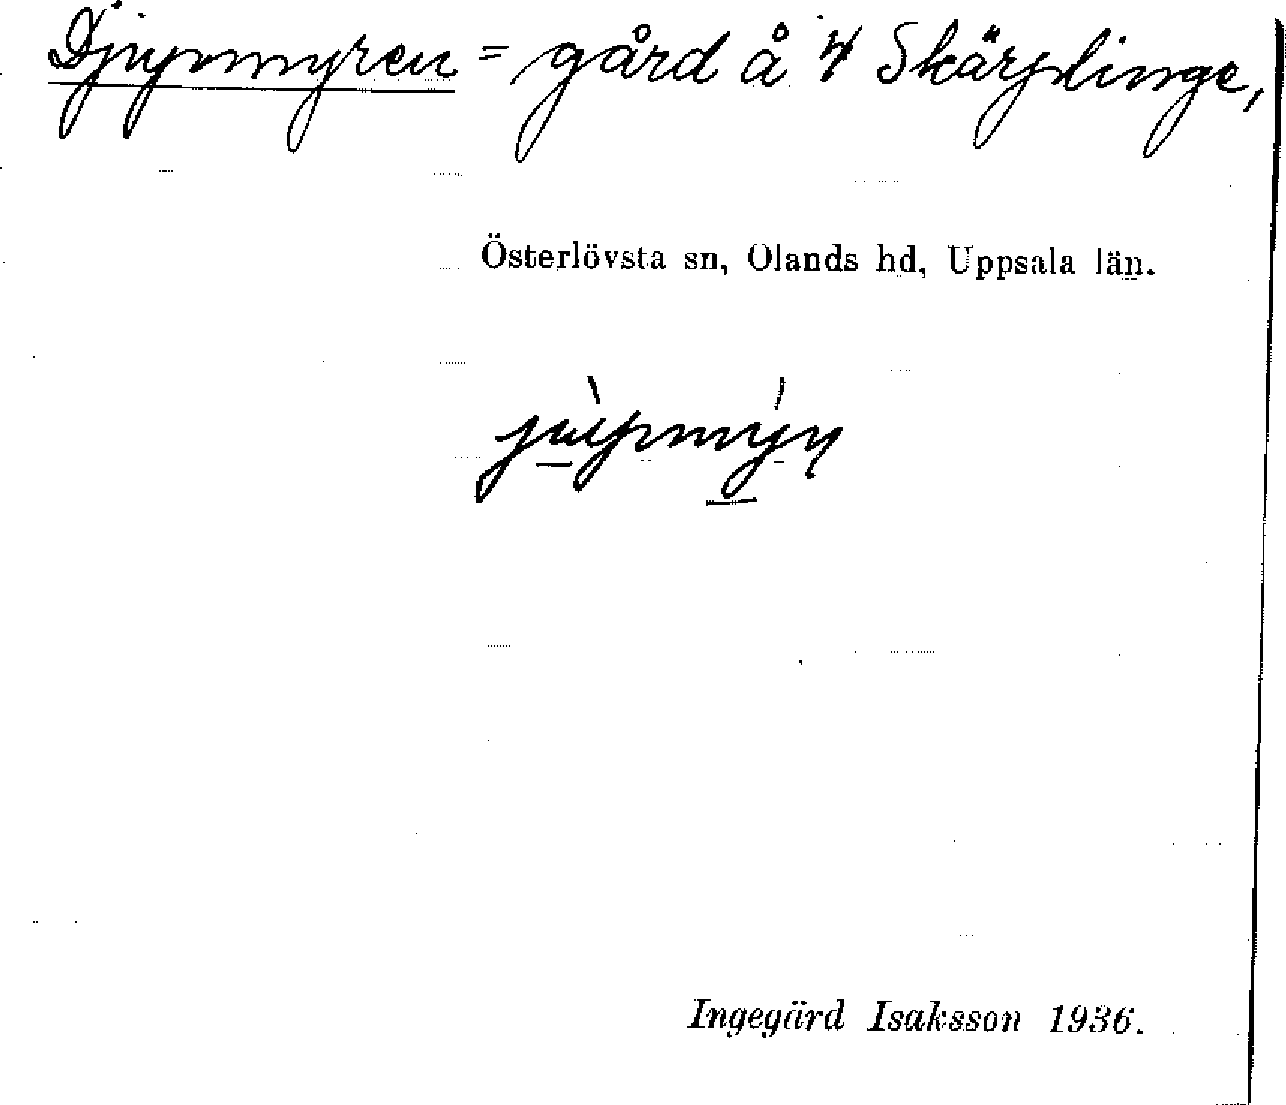 Djupmyren = gård å 4 Skärplinge,
Österlövsta sn, Olands hd, Uppsala län.
Ingegärd Isaksson 1936.